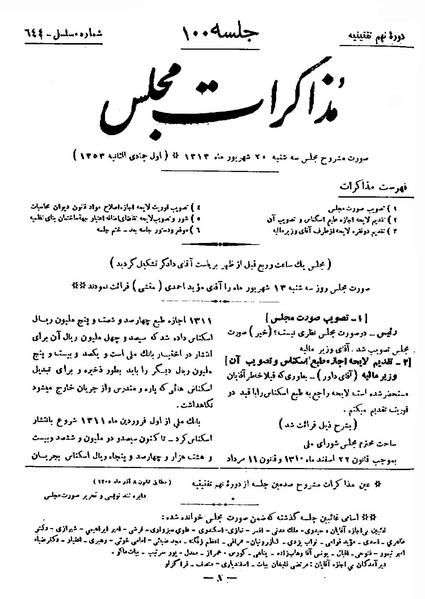 دورهٔ نهم تقنینیه
جلسه ۱۰۰
شماره مسلسل - ۶۴۴
مذاکرات مجلس
صورت مشروح مجلس سه شنبه ۲۰ شهریور ماه ۱۳۱۳ * (اول جمادی الثانیه ۱۳۵۳)
فهرست مذاکرات
۱) تصویب صورت مجلس
۲) تقدیم لایحه اجازه طبع اسکناس و تصویب آن
۳) تقدیم دو فقره لایحه از طرف آقای وزیر مالیه
۴) تصویب اولویت لایحه اجازه اصلاح مواد قانون دیوان محاسبات
۵) شور و تصویب لایحه تقاضای اضافه اعتبار جهة ساختمان بنای نظمیه
۶) موقع و دستور جلسه بعد - ختم جلسه
(مجلس یک ساعت و ربع قبل از ظهر بریاست آقای دادگر تشکیل گردید)
صورت مجلس روز سه شنبه ۱۳ شهریور ماه را آقای مؤید احمدی (منشی) قرائت نمودند **
[۱- تصویب صورت مجلس]
رئیس - در صورت مجلس نظری نیست؟ (خیر) صورت
مجلس تصویب شد. آقای وزیر مالیه
[۲- تقدیم لایحه اجازه طبع اسکناس و تصویب آن]
وزیر مالیه (آقای داور) - بطوری که قبلا خاطر آقایان
مستحضر شده است لایحه راجع به طبع اسکناس را با قید دو
فوریت تقدیم میکنم.
(بشرح ذیل قرائت شد)
ساحت محترم مجلس شورای ملی
بموجب قانون ۲۲ اسفند ماه ۱۳۱۰ و قانون ۱۱ مرداد
۱۳۱۱ اجازه طبع چهارصد و شصت و پنج ملیون ریال
اسکناس داده شد که سیصد و چهل ملیون ریال آن برای
انتشار در اختیار بانک ملی است و یکصد و بیست و پنج
ملیون ریال دیگر را باید بطور ذخیره و برای تبدیل
اسکناس هائی که پاره و مندرس و از جریان خارج میشود
نگاهداشت.
بانک ملی از اول فروردین ماه ۱۳۱۱ شروع بانتشار
اسکناس کرد. تا کنون سیصد و دو ملیون و ششصد و بیست
و هشت هزار و چهارصد و پنجاه ریال اسکناس بجریان
* عین مذاکرات مشروح صدمین جلسه از دوره نهم تقنینیه (مطابق قانون ۸ آذر ماه ۱۳۰۵)
دایره تند نویسی و تحریر صورت مجلس
** اسامی غائبین جلسه گذشته که ضمن صورت مجلس خوانده شده:
- ۸ -